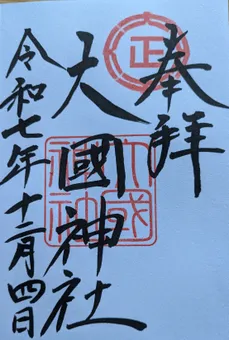 奉拝
大國神社
令和七年十二月四日
正